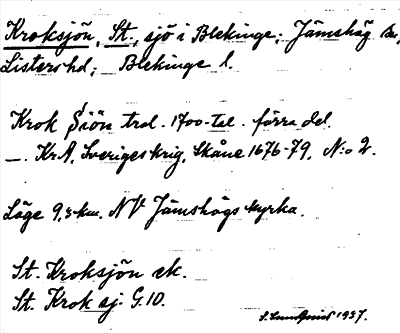 Kroksjön, St., sjö i Blekinge; Jämshög sn,
Listers hd; Blekinge l.
Krok Siön trol. 1700-tal. förra del.
—. KrA, Sveriges krig, Skåne 1676-79, N:o 2.
Läge 9,3 km. NV Jämshögs kyrka.
St. Kroksjön ek.
St. Krok sj. G.10.
S. Lundquist 1937.